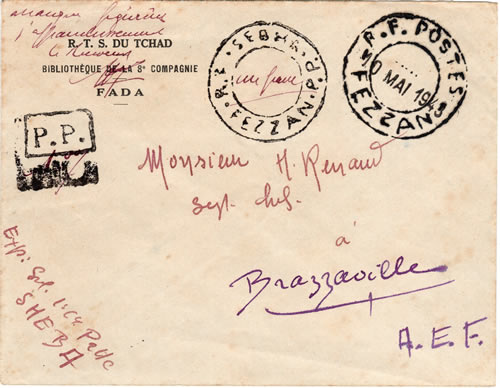 manque figurine
d'affranchissement
R. T. S. DU TCHAD
BIBLIOTHÈQUE DE LA 8e COMPAGNIE
FADA
R.F. SEBHA. P.P.
FEZZAN
R.F. POSTES
0 MAI 1943
FEZZAN
P.P.
Monsieur H. Renaud
Sgt. chef.
à
Brazzaville
A. E. F.
Exp: Sgt
SHEBA